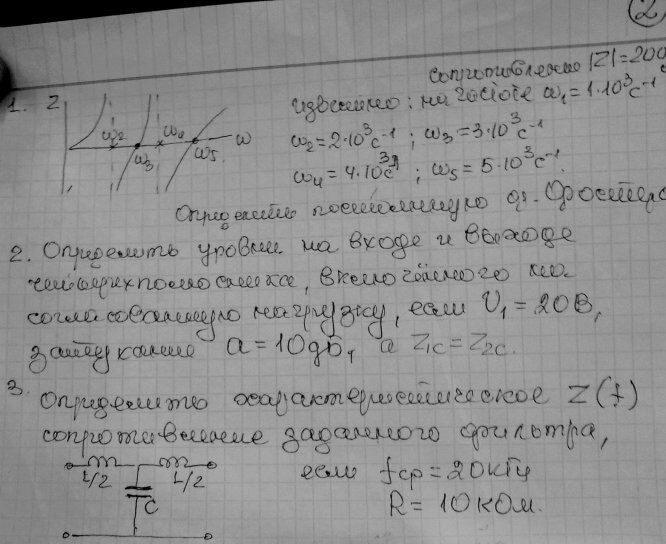 2
сопротивление |Z|=200
1. Z известно: на частоте ω₁=1·10³с⁻¹
ω₂ ω₄ ω ω₂=2·10³с⁻¹; ω₃=3·10³с⁻¹
ω₃ ω₅ ω₄=4·10³с⁻¹; ω₅=5·10³с⁻¹.
Определить постоянную Фостера
2. Определить уровни на входе и выходе
четырехполюсника, включённого на
согласованную нагрузку, если U₁=20В,
затухание a=10дБ, а Z₁c=Z₂c.
3. Определить характеристическое Z(f)
сопротивление заданного фильтра,
L/2 L/2 если fср=20кГц
C R=10кОм.